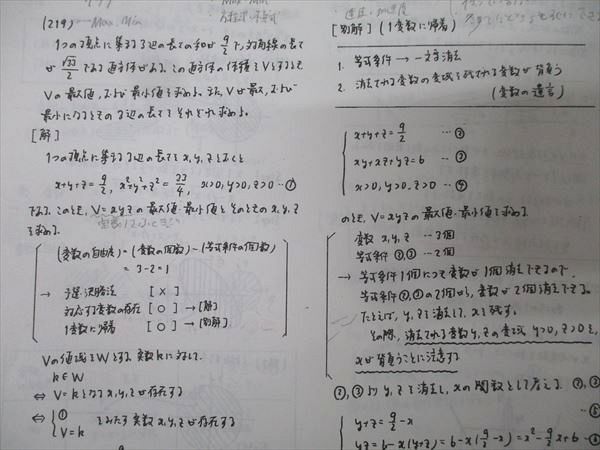 (219)
Max. Min
1つの頂点に集まる3辺の長さの和が 9/2 で、対角線の長さ
が √33/2 である直方体がある。この直方体の体積をVとするとき
Vの最大値,および最小値を求めよ。また,Vが最大,および
最小になるときの3辺の長さをそれぞれ求めよ。
[解]
1つの頂点に集まる3辺の長さを x,y,z とおくと
x+y+z = 9/2, x²+y²+z² = 33/4, x>0, y>0, z>0 …①
である。このとき, V=xyzの最大値・最小値とそのときのx,y,z
を求める。
(変数の自由度) = (変数の個数) − (等式条件の個数)
= 3−2 = 1
→ 予選・決勝法 [×]
対応する変数の存在 [○] → [解]
1変数に帰着 [○] → [別解]
Vの値域をWとする。実数kに対して、
k∈W
⇔ V=k となる x,y,z が存在する
⇔ { ①
V=k をみたす実数 x,y,z が存在する
[別解] (1変数に帰着)
1. 等式条件 → 一文字消去
2. 消去される変数の変域を残される変数が背負う
(変数の遺言)
x+y+z = 9/2 …②
xy+xz+yz = 6 …③
x>0, y>0, z>0 …④
のとき, V=xyzの最大値・最小値を求める。
変数 x,y,z …3個
等式条件 ②,③ …2個
→ 等式条件1個につき変数が1個消去できるので,
等式条件②,③の2個から, 変数が2個消去できる。
たとえば, y,zを消去して, xを残す。
その際, 消去される変数y,zの変域 y>0, z>0を,
xが背負うことに注意する
②,③より y,zを消去し, xの関数として考える。②,③
y+z = 9/2 − x …⑤
yz = 6−x(y+z) = 6−x(9/2−x) = x²−9/2x+6 …⑥